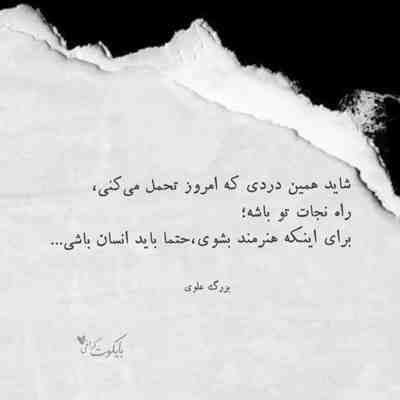 شاید همین دردی که امروز تحمل می‌کنی،
راه نجات تو باشه؛
برای اینکه هنرمند بشوی،حتما باید انسان باشی...
بزرگ علوی